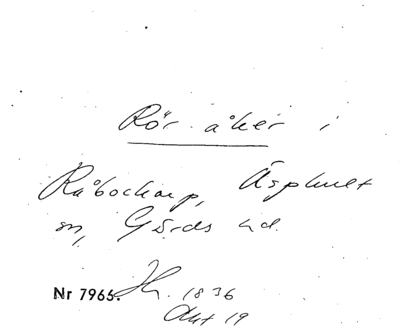 Rör åker i
Råbockarp, Äsphult
sn, Gärds hd.
Nr 7965. Jh. 1836
Akt 19